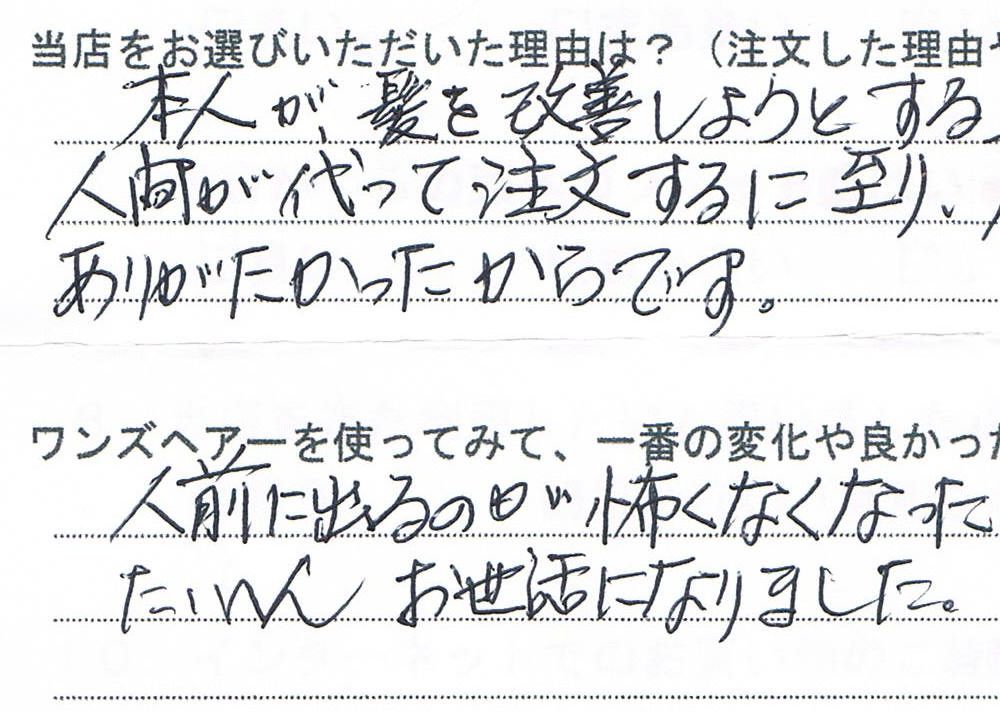 当店をお選びいただいた理由は?(注文した理由
本人が髪を改善しようとする
人間が代って注文するに至り、
ありがたかったからです。
ワンズヘアーを使ってみて、一番の変化や良かった
人前に出るのが怖くなくなった
たいへん お世話になりました。